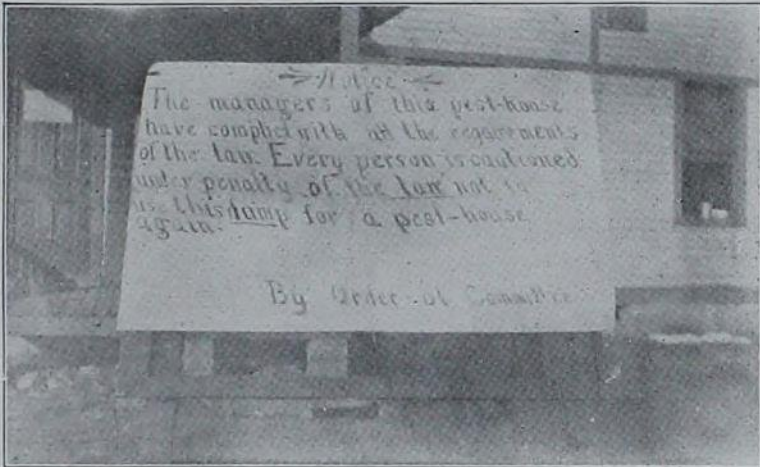 Notice
The managers of this pest-house
have complied with all the requirements
of the law. Every person is cautioned
under penalty of the law not to
use this dump for a pest-house
again.
By Order of Committee